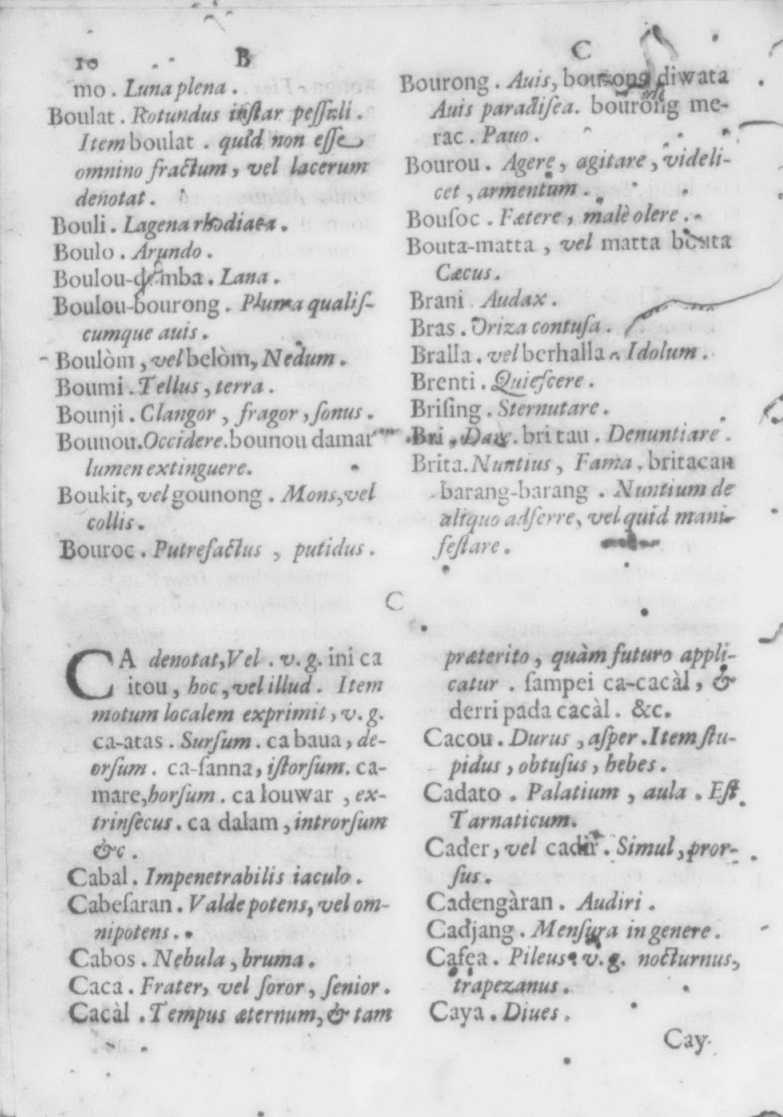 10 B
mo. Luna plena.
Boulat. Rotundus inſtar peſſuli.
Item boulat. quid non eſſe
omnino fractum, vel lacerum
denotat.
Bouli. Lagena rhodiaca.
Boulo. Arundo.
Boulou-domba. Lana.
Boulou-bourong. Pluma qualiſ-
cumque auis.
Boulòm, vel belòm, Nedum.
Boumi. Tellus, terra.
Bounji. Clangor, fragor, ſonus.
Bounou. Occidere. bounou damar
lumen extinguere.
Boukit, vel gounong. Mons, vel
collis.
Bouroc. Putrefactus, putidus.
C
Bourong. Auis, bourong diwata
Auis paradiſea. bourong me-
rac. Pauo.
Bourou. Agere, agitare, videli-
cet, armentum.
Bouſoc. Fætere, malè olere.
Bouta-matta, vel matta bouta
Cæcus.
Brani. Audax.
Bras. Oriza contuſa.
Bralla. vel berhalla. Idolum.
Brenti. Quieſcere.
Briſing. Sternutare.
Bri. Dare. bri tau. Denuntiare.
Brita. Nuntius, Fama. britacan
barang-barang. Nuntium de
aliquo adferre, vel quid mani-
feſtare.
C
CA denotat, Vel. v. g. ini ca
itou, hoc, vel illud. Item
motum localem exprimit, v. g.
ca-atas. Surſum. ca baua, de-
orſum. ca-ſanna, iſtorſum. ca-
mare, horſum. ca louwar, ex-
trinſecus. ca dalam, introrſum
&c.
Cabal. Impenetrabilis iaculo.
Cabeſaran. Valde potens, vel om-
nipotens.
Cabos. Nebula, bruma.
Caca. Frater, vel ſoror, ſenior.
Cacàl. Tempus æternum, & tam
præterito, quàm futuro appli-
catur. ſampei ca-cacàl, &
derri pada cacàl. &c.
Cacou. Durus, aſper. Item ſtu-
pidus, obtuſus, hebes.
Cadato. Palatium, aula. Eſt
Tarnaticum.
Cader, vel cadir. Simul, pror-
ſus.
Cadengàran. Audiri.
Cadjang. Menſura in genere.
Cafea. Pileus v. g. nocturnus,
trapezanus.
Caya. Diues.
Cay